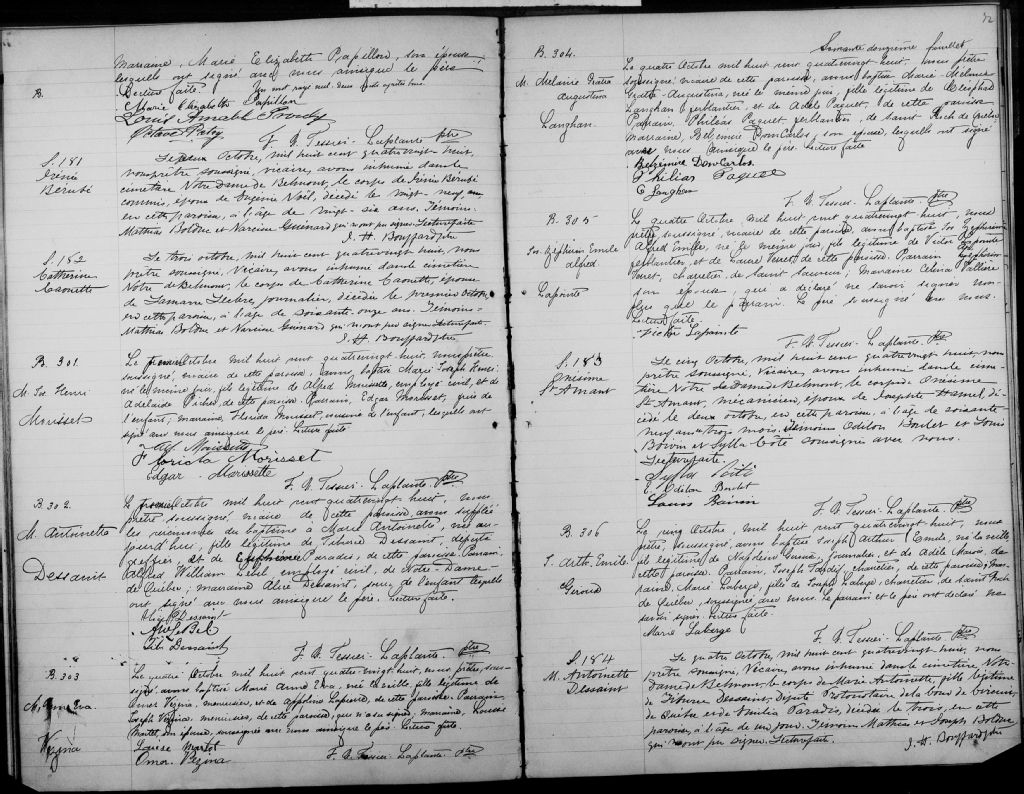 marraine, Marie Elizabeth Papillon, son épouse,
lesquels ont signé avec nous ainsi que le père
B.
Lecture faite. Un mot rayé nul. deux
Marie Elizabeth Papillon
Louis Amable Proudy
Octave Patry
F. X. Tessier-Laplante ptre
S. 181
Irénée
Bérubé
Octobre, mil huit cent quatrevingt huit,
nous prêtre soussigné, vicaire, avons inhumé dans le
cimetière Notre Dame de Belmont, le corps de Irénée Bérubé
commis, époux de Eugénie Noël, décédé le vingt-neuf,
en cette paroisse, à l'âge de vingt-six ans. Témoins
Mathias Bolduc et Narcisse Guénard qui n'ont pu signer. Lecture faite
J. H. Bouffard ptre
S. 182
Catherine
Caouette
Le trois octobre, mil huit cent quatrevingt huit, nous
prêtre soussigné, Vicaire, avons inhumé dans le cimetière
Notre de Belmont, le corps de Catherine Caouette, épouse
de, journalier, décédée le premier Octobre,
en cette paroisse, à l'âge de soixante onze ans. Témoins
Mathias Bolduc et Narcisse Guénard qui n'ont pu signer. Lecture faite.
J. H. Bouffard ptre
B. 301
M. Jos Henri
Morisset
Le Octobre mil huit cent quatrevingt huit, nous prêtre
soussigné, vicaire de cette paroisse, avons baptisé Marie Joseph Henri
né le même jour, fils légitime de Alfred Morissette, employé civil, et de
Adelaide, de cette paroisse. Parrain, Edgar Morisset, frère de
l'enfant, marraine, Florida Morisset, cousine de l'enfant, lesquels ont
signé avec nous ainsi que le père. Lecture faite
Alf. Morissette
Floricta Morisset
Edgar Morissette
F. X. Tessier-Laplante ptre
B. 302.
M. Antoinette
Dessaint
Le Octobre mil huit cent quatrevingt huit, nous
prêtre soussigné vicaire de cette paroisse avons suppléé
les cérémonies du baptême à Marie Antoinette, née
aujourd'hui, fille légitime de Tiburce Dessaint, député
greffier, et de Paradis, de cette paroisse. Parrain,
Alfred William Lebel employé civil, de Notre-Dame-
de Québec; marraine Alice Dessaint, soeur de l'enfant lesquels
ont signé avec nous ainsi que le père. Lecture faite.
Alice Dessaint
AW LeBel
Tib. Dessaint
F. X. Tessier-Laplante ptre
B. 303
M. Anna Eva
Vezina
Le quatre Octobre mil huit cent quatre-vingt huit, nous prêtre, sous-
signé, avons baptisé Marie Anna Eva, née la veille, fille légitime de
Omer Vezina, menuisier, et de, de cette paroisse. Parrain,
Joseph Vézina, menuisier, de cette paroisse, qui n'a su signer, marraine, Louise
Martel, son épouse, soussignée avec nous ainsi que le père. Lecture faite
Louise Martel
Omer Vezina
F. X. Tessier-Laplante ptre
72
Soixante douzième feuillet
B. 304.
M. Melanie Gratia
Augustina
Langhan
Le quatre Octobre mil huit cent quatrevingt huit, nous prêtre
soussigné, vicaire de cette paroisse, avons baptisé Marie Melanie
Gratia-Augustina, née le même jour, fille légitime de Cléophas
Langhan ferblantier, et de Adèle Paquet, de cette paroisse
Parrain, Philéas Paquet, ferblantier, de Saint Roch de Québec
marraine, Belzémire DomCarlos, son épouse, lesquels ont signé
avec nous ainsi que le père. Lecture faite
Belzemire Dom Carlos
Philias Paquet
C Langhan
F. X. Tessier-Laplante ptre
B. 305
Jos. Zephirin Emile
Alfred
Lapointe
Le quatre Octobre, mil huit cent quatrevingt huit, nous
prêtre, soussigné, vicaire de cette paroisse, avons baptisé Jos Zephirin
Alfred Emile, né le même jour, fils légitime de Victor Lapointe
ferblantier, et de Laure de cette paroisse. Parrain Zephirin
charretier, de Saint Sauveur; marraine Celina Vallière
son épouse, qui a déclaré ne savoir signer non-
plus que le parrain. Le père soussigné avec nous.
Lecture faite.
Victor Lapointe
F. X. Tessier-Laplante ptre
S. 183
Onésime
St Amant
Le cinq Octobre, mil huit cent quatrevingt huit, nous
prêtre soussigné, Vicaire, avons inhumé dans le cime-
tière Notre de Dame de Belmont, le corps de Onésime
St Amant, mécanicien, époux de Josephte Hamel, dé-
cédé le deux octobre, en cette paroisse, à l'âge de soixante
neuf ans trois mois. Témoins Odilon Boulet et Louis
Boivin et Sylla Côté soussignés avec nous.
Lecture faite.
Sylla Côté
Odilon Boulet
Louis Boivin
F. X. Tessier-Laplante ptre
B. 306
J. Arth. Emile.
Giroux
Le cinq Octobre, mil huit cent quatrevingt huit, nous
prêtre, soussigné, avons baptisé Joseph Arthur Emile, né la veille,
fils légitime de Napoléon Giroux, journalier, et de Adèle Marois, de
cette paroisse. Parrain, Joseph Tardif, charretier, de cette paroisse; mar-
raine, Marie Laberge, fille de Joseph Laberge, charretier, de Saint Roch
de Québec, soussignée avec nous. Le parrain et le père ont déclaré ne
savoir signer. Lecture faite.
Marie Laberge
F. X. Tessier-Laplante ptre
S. 184
M. Antoinette
Dessaint
Le quatre Octobre, mil huit cent quatrevingt huit, nous
prêtre soussigné, Vicaire, avons inhumé dans le cimetière, Notre
Dame de Belmont, le corps de Marie Antoinette, fille légitime
de Tiburce Dessaint, Député Protonotaire de la
et de Emilia Paradis, décédée le trois, en cette
paroisse, à l'âge de un jour. Témoins Mathias et Joseph Bolduc
qui n'ont pu signer. Lecture faite.
J. H. Bouffard ptre